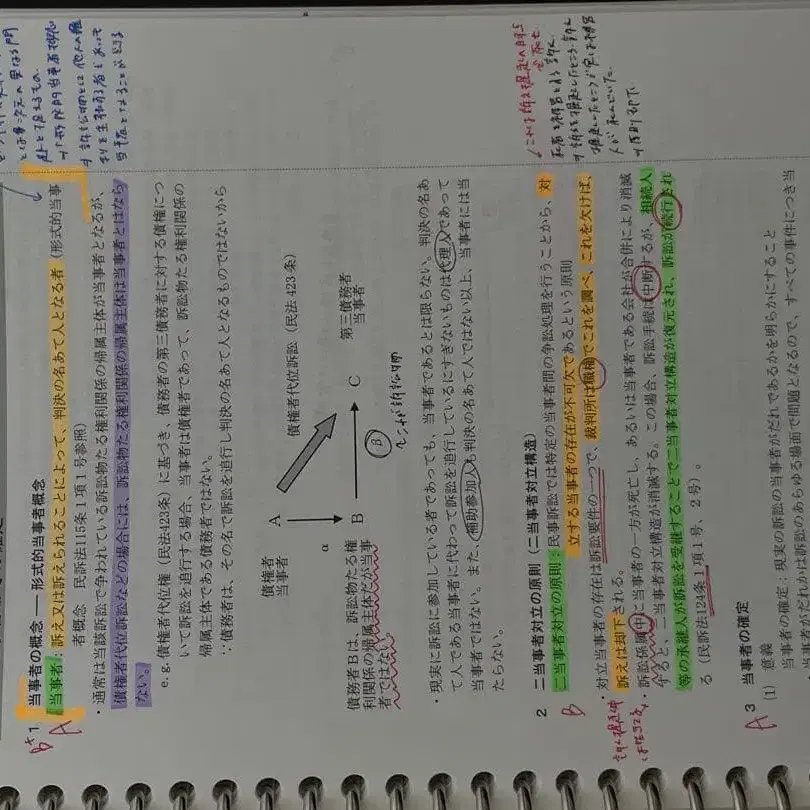 1 当事者の概念 ― 形式的当事者概念
当事者：訴え又は訴えられることによって、判決の名あて人となる者（形式的当事
者概念　民訴法115条1項1号参照）
・通常は当該訴訟で争われている訴訟物たる権利関係の帰属主体が当事者となるが、
債権者代位訴訟などの場合には、訴訟物たる権利関係の帰属主体は当事者とはなら
ない。
e.g.債権者代位権（民法423条）に基づき、債務者の第三債務者に対する債権につ
いて訴訟を追行する場合、当事者は債権者であって、訴訟物たる権利関係の
帰属主体である債務者ではない。
∵債務者は、その名で訴訟を追行し判決の名あて人となるものではないから
債権者代位訴訟（民法423条）
債権者
当事者
A
α
B
C
第三債務者
当事者
B
債務者Bは、訴訟物たる権
利関係の帰属主体だが当事
者ではない。
・現実に訴訟に参加している者であっても、当事者であるとは限らない。判決の名あ
て人である当事者に代わって訴訟を追行しているにすぎないものは代理人であって
当事者ではない。また、補助参加人も判決の名あて人ではない以上、当事者には当
たらない。
2 二当事者対立の原則（二当事者対立構造）
二当事者対立の原則：民事訴訟では特定の当事者間の争訟処理を行うことから、対
立する当事者の存在が不可欠であるという原則
・対立当事者の存在は訴訟要件の一つで、裁判所は職権でこれを調べ、これを欠けば、
訴えは却下される。
・訴訟係属中に当事者の一方が死亡し、あるいは当事者である会社が合併により消滅
すると、二当事者対立構造が消滅する。この場合、訴訟手続は中断するが、相続人
等の承継人が訴訟を受継することで二当事者対立構造が復元され、訴訟が続行され
る（民訴法124条1項1号、2号）。
3 当事者の確定
(1) 意義
当事者の確定：現実の訴訟の当事者がだれであるかを明らかにすること
当事者がだれかは訴訟のあらゆる場面で問題となるので、すべての事件につき当
B
A
B
A